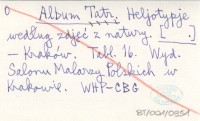 Album Tatr. Heljotypje
według zdjęć z natury. [ . ]
- Kraków. Tabl. 16. Wyd.
Salonu Malarzy Polskich w
Krakowie. WHP-CBG
BT/001/0351